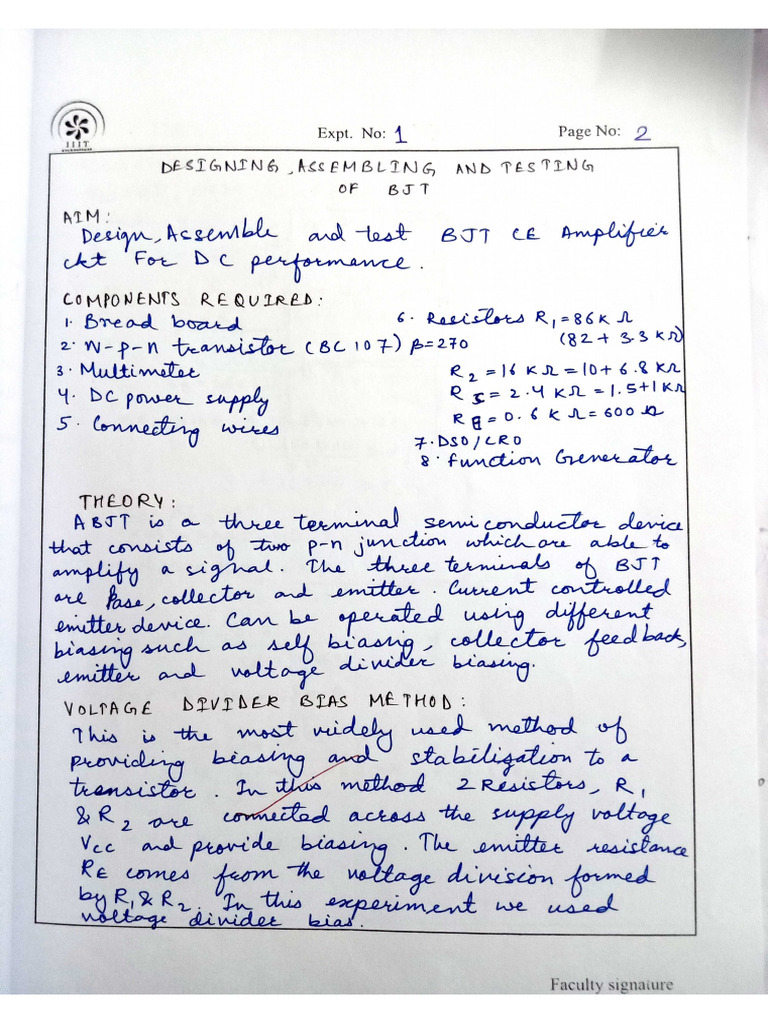 IIIT
Expt. No: 1
Page No: 2
DESIGNING, ASSEMBLING AND TESTING
OF BJT
AIM:
Design, Assemble and test BJT CE Amplifier
ckt For DC performance.
COMPONENTS REQUIRED:
1. Bread board
2. N-p-n transistor (BC 107) β=270
3. Multimeter
4. DC power supply
5. Connecting wires
6. Resistors R1 = 86K Ω
(82 + 3.3 KΩ)
R2 = 16 KΩ = 10 + 6.8 KΩ
R = 2.4 KΩ = 1.5+1 KΩ
RE = 0.6 K Ω = 600 Ω
7. DSO/CRO
8. Function Generator
THEORY:
A BJT is a three terminal semiconductor device
that consists of two p-n junction which are able to
amplify a signal. The three terminals of BJT
are Base, collector and emitter. Current controlled
emitter device. Can be operated using different
biasing such as self biasing, collector feedback,
emitter and voltage divider biasing.
VOLTAGE DIVIDER BIAS METHOD:
This is the most widely used method of
providing biasing and stabilization to a
transistor. In this method 2 Resistors, R1
& R2 are connected across the supply voltage
Vcc and provide biasing. The emitter resistance
RE comes from the voltage division formed
by R1 & R2. In this experiment we used
voltage divider bias.
Faculty signature